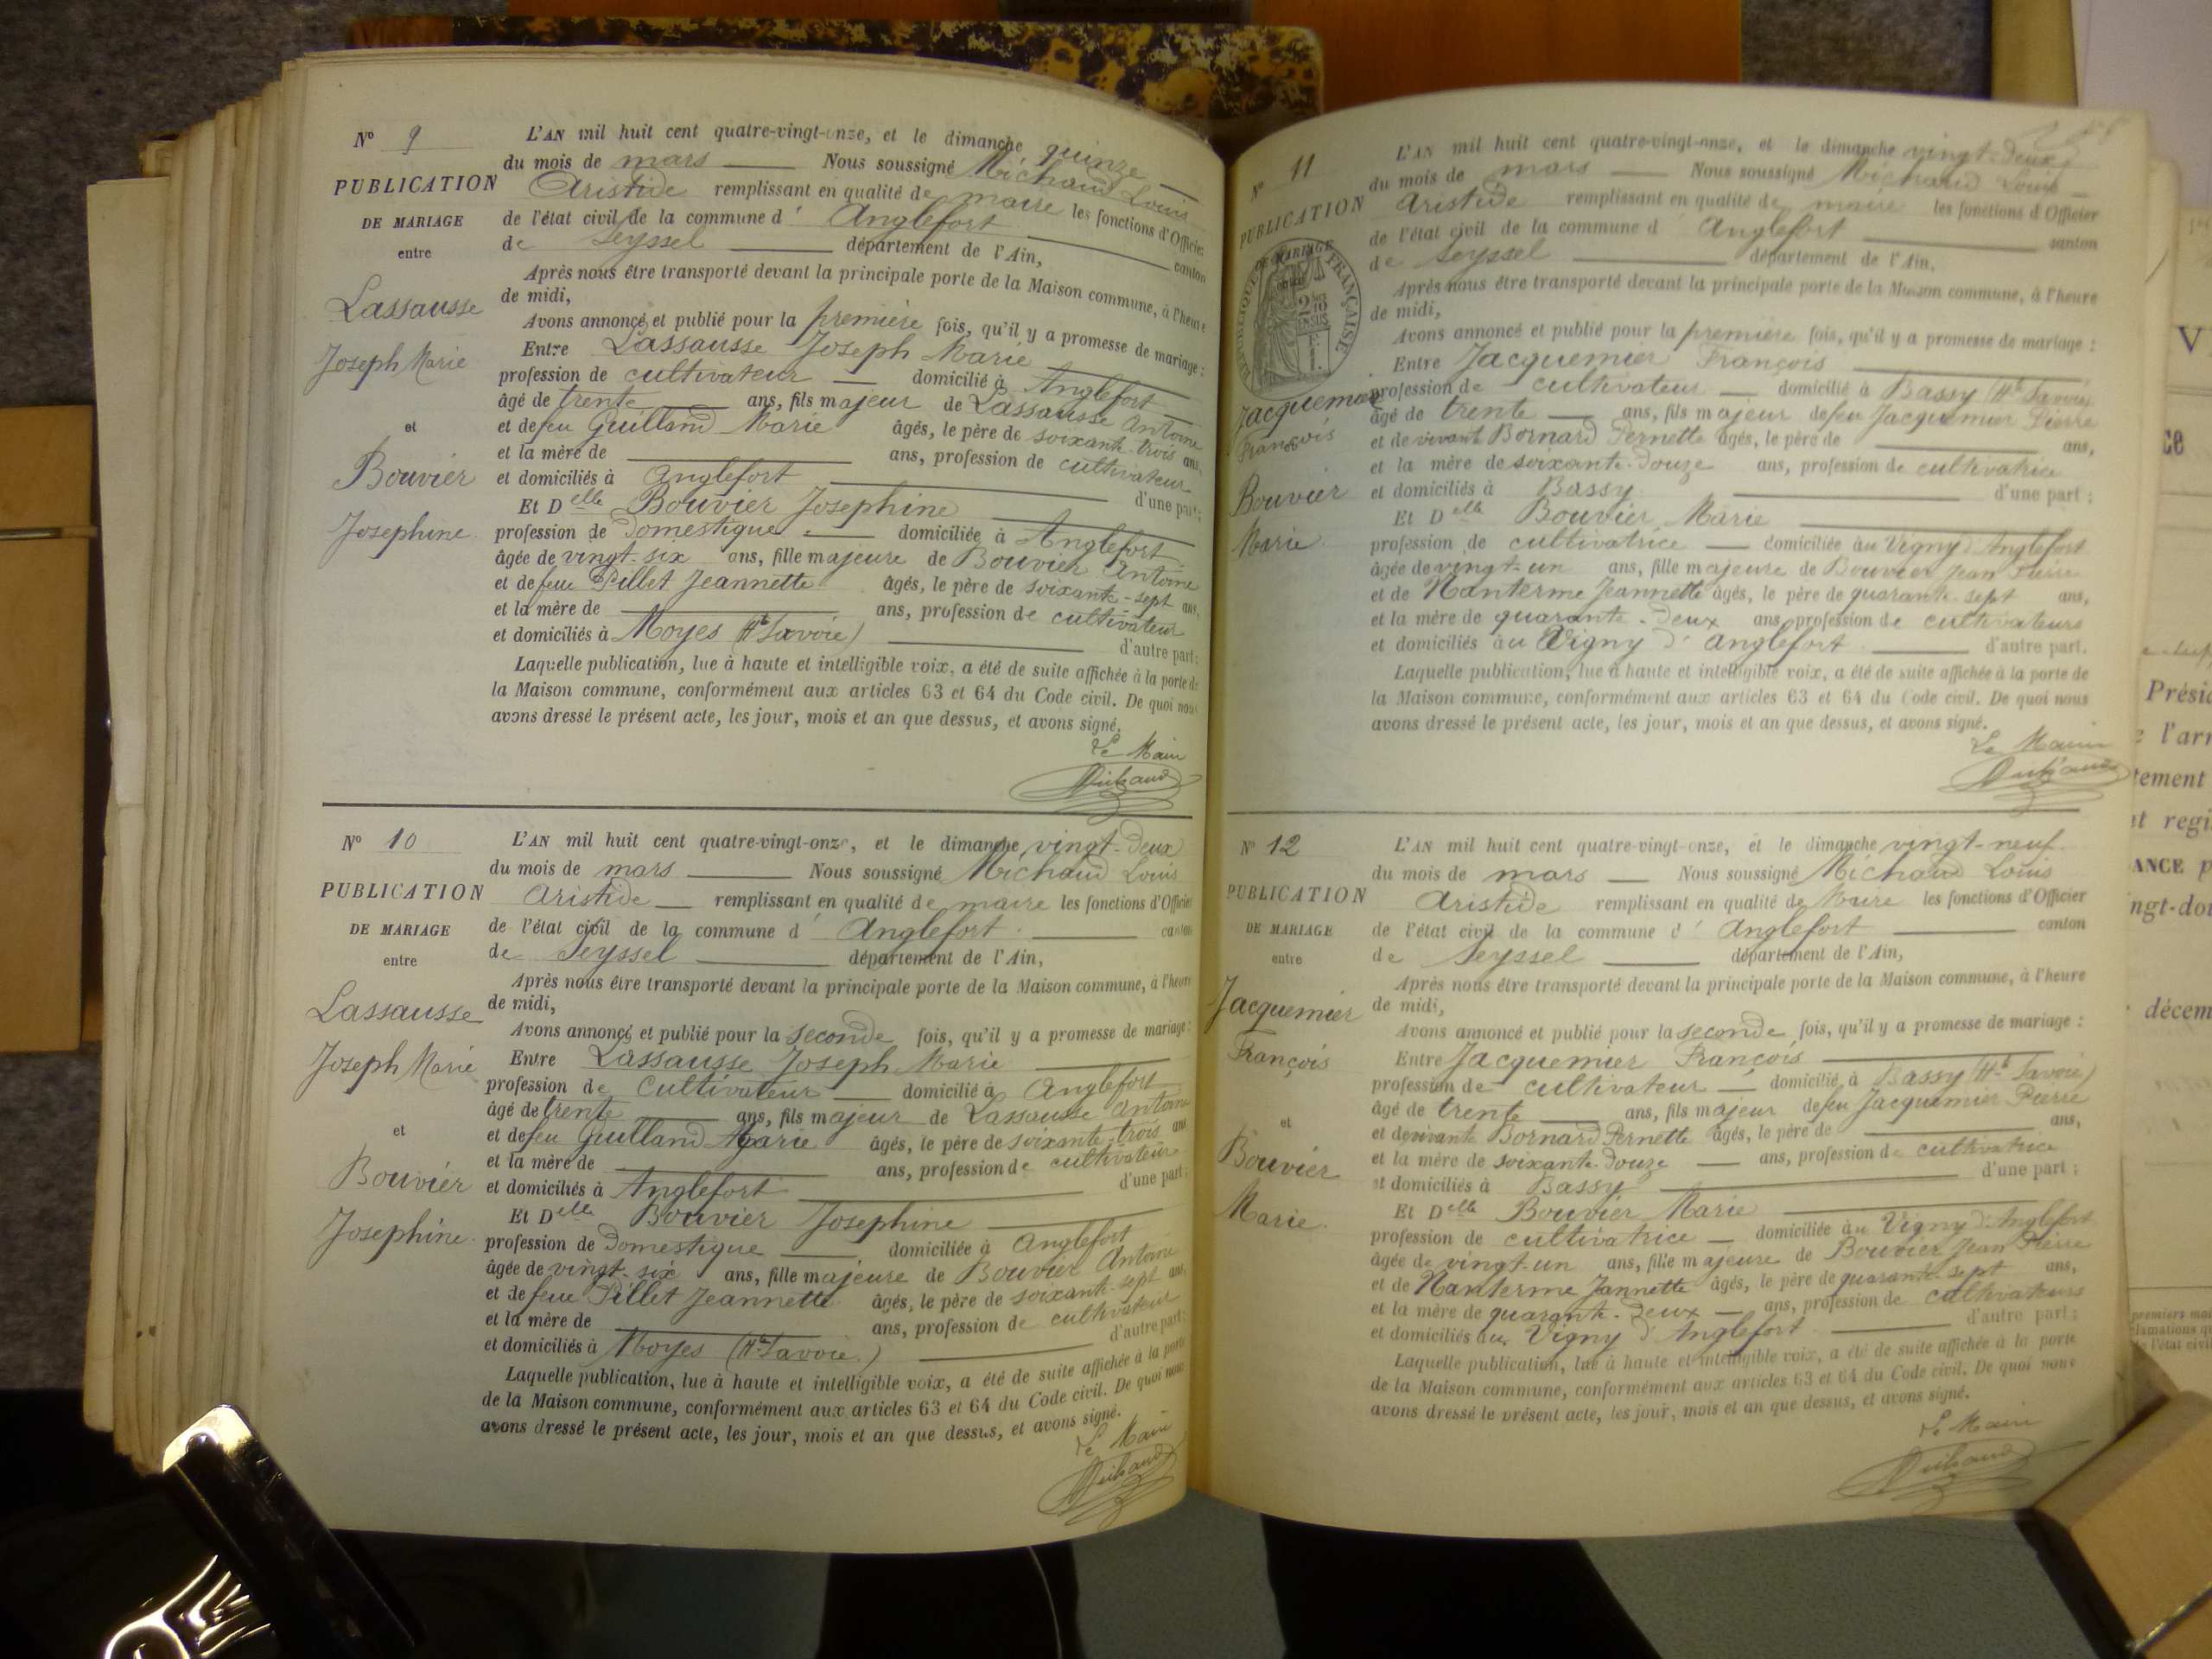 N° 9
PUBLICATION
DE MARIAGE
entre
Lassausse
Joseph Marie
et
Bouvier
Josephine
L'AN mil huit cent quatre-vingt-onze, et le dimanche quinze
du mois de mars Nous soussigné Michaud Louis
Aristide remplissant en qualité de maire les fonctions d'Officier
de l'état civil de la commune d' Anglefort canton
de Seyssel département de l'Ain,
Après nous être transporté devant la principale porte de la Maison commune, à l'heure
de midi,
Avons annoncé et publié pour la première fois, qu'il y a promesse de mariage :
Entre Lassausse Joseph Marie
profession de cultivateur domicilié à Anglefort
âgé de trente ans, fils majeur de Lassausse Antoine
et de feu Guilland Marie âgés, le père de soixante-trois ans,
et la mère de ans, profession de cultivateur
et domiciliés à Anglefort d'une part;
Et Delle Bouvier Josephine
profession de Domestique domiciliée à Anglefort
âgée de vingt-six ans, fille majeure de Bouvier Antoine
et de feue Pillet Jeannette âgés, le père de soixante-sept ans,
et la mère de ans, profession de cultivateur
et domiciliés à Moyes (Hte Savoie) d'autre part;
Laquelle publication, lue à haute et intelligible voix, a été de suite affichée à la porte de
la Maison commune, conformément aux articles 63 et 64 du Code civil. De quoi nous
avons dressé le présent acte, les jour, mois et an que dessus, et avons signé.
Le Maire
Michaud
N° 10
PUBLICATION
DE MARIAGE
entre
Lassausse
Joseph Marie
et
Bouvier
Josephine
L'AN mil huit cent quatre-vingt-onze, et le dimanche vingt-Deux
du mois de mars Nous soussigné Michaud Louis
Aristide remplissant en qualité de maire les fonctions d'Officier
de l'état civil de la commune d' Anglefort canton
de Seyssel département de l'Ain,
Après nous être transporté devant la principale porte de la Maison commune, à l'heure
de midi,
Avons annoncé et publié pour la seconde fois, qu'il y a promesse de mariage :
Entre Lassausse Joseph Marie
profession de Cultivateur domicilié à Anglefort
âgé de trente ans, fils majeur de Lassausse Antoine
et de feu Guilland Marie âgés, le père de soixante-trois ans
et la mère de ans, profession de cultivateur
et domiciliés à Anglefort d'une part;
Et Delle Bouvier Josephine
profession de Domestique domiciliée à Anglefort
âgée de vingt-six ans, fille majeure de Bouvier Antoine
et de feue Pillet Jeannette âgés, le père de soixante-sept ans,
et la mère de ans, profession de cultivateur
et domiciliés à Moyes (Hte Savoie) d'autre part;
Laquelle publication, lue à haute et intelligible voix, a été de suite affichée à la porte
de la Maison commune, conformément aux articles 63 et 64 du Code civil. De quoi nous
avons dressé le présent acte, les jour, mois et an que dessus, et avons signé.
Le Maire
Michaud
N° 11
PUBLICATION
DE MARIAGE
RÉPUBLIQUE FRANÇAISE
Jacquemier
François
Bouvier
Marie
L'AN mil huit cent quatre-vingt-onze, et le dimanche vingt-Deux
du mois de mars Nous soussigné Michaud Louis
Aristide remplissant en qualité de maire les fonctions d'Officier
de l'état civil de la commune d' Anglefort canton
de Seyssel département de l'Ain,
Après nous être transporté devant la principale porte de la Maison commune, à l'heure
de midi,
Avons annoncé et publié pour la première fois, qu'il y a promesse de mariage :
Entre Jacquemier François
profession de cultivateur domicilié à Bassy (Hte Savoie)
âgé de trente ans, fils majeur de feu Jacquemier Pierre
et de vivante Bornard Pernette âgés, le père de ans,
et la mère de soixante-Douze ans, profession de cultivatrice
et domiciliés à Bassy d'une part;
Et Delle Bouvier Marie
profession de cultivatrice domiciliée au Vigny d'Anglefort
âgée de vingt-un ans, fille majeure de Bouvier Jean Pierre
et de Nanterme Jeannette âgés, le père de quarante-sept ans,
et la mère de quarante-Deux ans, profession de cultivateurs
et domiciliés au Vigny d'Anglefort d'autre part.
Laquelle publication, lue à haute et intelligible voix, a été de suite affichée à la porte de
la Maison commune, conformément aux articles 63 et 64 du Code civil. De quoi nous
avons dressé le présent acte, les jour, mois et an que dessus, et avons signé.
Le Maire
Michaud
N° 12
PUBLICATION
DE MARIAGE
entre
Jacquemier
François
et
Bouvier
Marie
L'AN mil huit cent quatre-vingt-onze, et le dimanche vingt-neuf
du mois de mars Nous soussigné Michaud Louis
Aristide remplissant en qualité de Maire les fonctions d'Officier
de l'état civil de la commune d' Anglefort canton
de Seyssel département de l'Ain,
Après nous être transporté devant la principale porte de la Maison commune, à l'heure
de midi,
Avons annoncé et publié pour la seconde fois, qu'il y a promesse de mariage :
Entre Jacquemier François
profession de cultivateur domicilié à Bassy (Hte Savoie)
âgé de trente ans, fils majeur de feu Jacquemier Pierre
et de vivante Bornard Pernette âgés, le père de ans,
et la mère de soixante-Douze ans, profession de cultivatrice
et domiciliés à Bassy d'une part;
Et Delle Bouvier Marie
profession de cultivatrice domiciliée au Vigny d'Anglefort
âgée de vingt-un ans, fille majeure de Bouvier Jean Pierre
et de Nanterme Jannette âgés, le père de quarante-sept ans,
et la mère de quarante-Deux ans, profession de cultivateurs
et domiciliés au Vigny d'Anglefort d'autre part;
Laquelle publication, lue à haute et intelligible voix, a été de suite affichée à la porte
de la Maison commune, conformément aux articles 63 et 64 du Code civil. De quoi nous
avons dressé le présent acte, les jour, mois et an que dessus, et avons signé.
Le Maire
Michaud